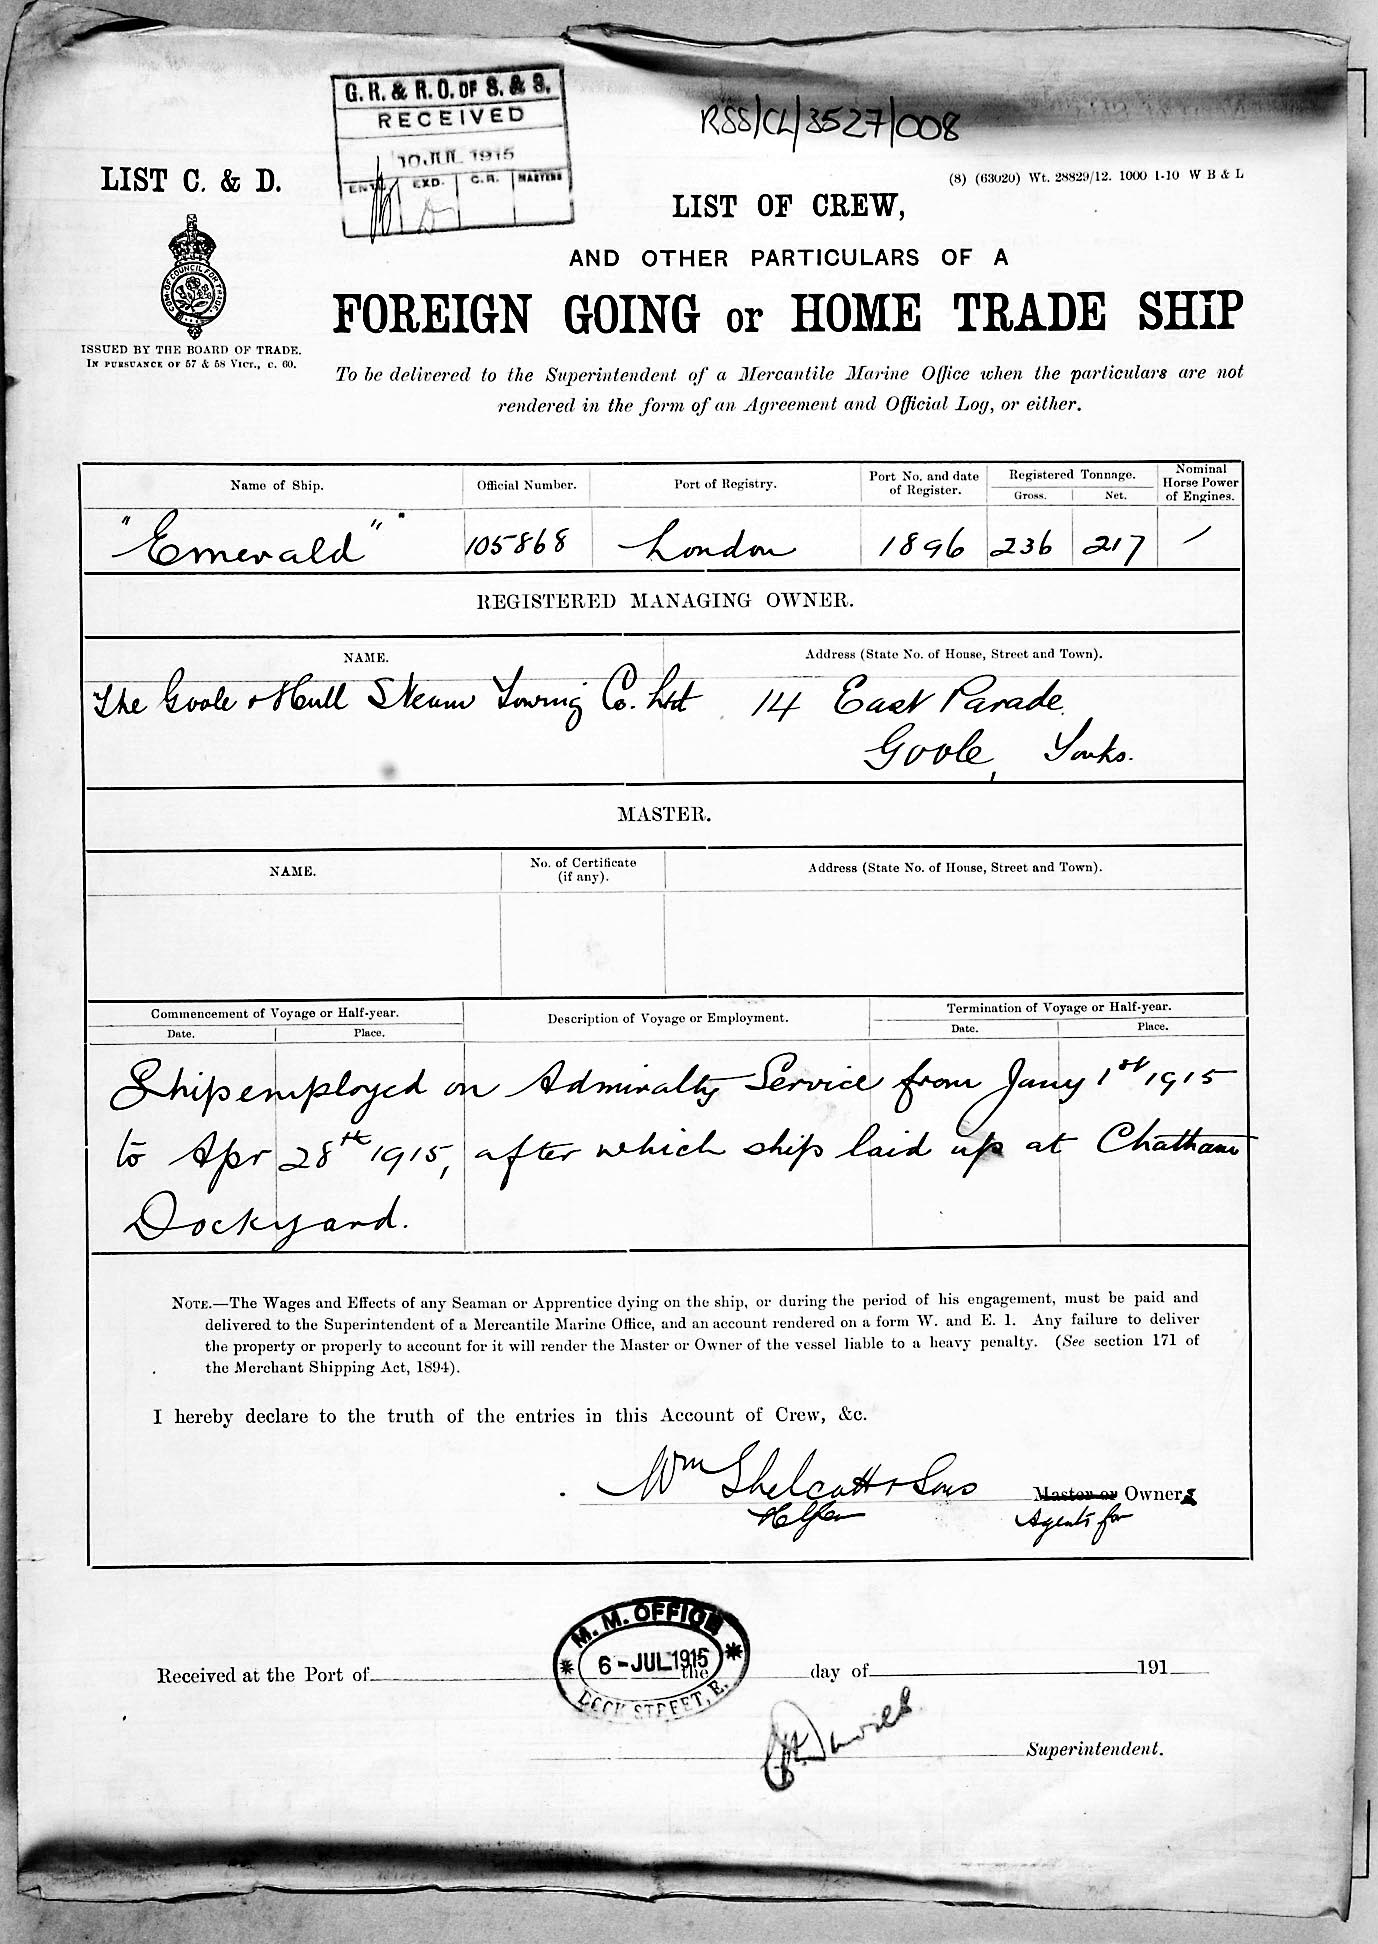 G. R. & R. O. OF S. & S.
RECEIVED
10 JUL 1915
ENT. EXD. C.R. MASTERS
RSS/CL/3527/008
LIST C. & D.
(8) (63020) Wt. 28829/12. 1000 1-10 W B & L
LIST OF CREW,
AND OTHER PARTICULARS OF A
FOREIGN GOING or HOME TRADE SHIP
ISSUED BY THE BOARD OF TRADE.
IN PURSUANCE OF 57 & 58 VICT., C. 60.
To be delivered to the Superintendent of a Mercantile Marine Office when the particulars are not
rendered in the form of an Agreement and Official Log, or either.
Name of Ship. Official Number. Port of Registry. Port No. and date of Register. Registered Tonnage. Gross. Net. Nominal Horse Power of Engines.
"Emerald" 105868 London 1896 236 217 /
REGISTERED MANAGING OWNER.
NAME. Address (State No. of House, Street and Town).
The Goole & Hull Steam Towing Co. Ltd 14 East Parade
Goole, Yorks.
MASTER.
NAME. No. of Certificate (if any). Address (State No. of House, Street and Town).
Commencement of Voyage or Half-year. Description of Voyage or Employment. Termination of Voyage or Half-year.
Date. Place. Date. Place.
Ship employed on Admiralty Service from Jany 1st 1915
to Apr 28th 1915, after which ship laid up at Chatham
Dockyard.
NOTE.—The Wages and Effects of any Seaman or Apprentice dying on the ship, or during the period of his engagement, must be paid and
delivered to the Superintendent of a Mercantile Marine Office, and an account rendered on a form W. and E. 1. Any failure to deliver
the property or properly to account for it will render the Master or Owner of the vessel liable to a heavy penalty. (See section 171 of
the Merchant Shipping Act, 1894).
I hereby declare to the truth of the entries in this Account of Crew, &c.
Wm Shelcott & Sons Master or Owners
Agents for
M. M. OFFICE
6 - JUL 1915
DOCK STREET, E.
Received at the Port of the day of 191
Davies
Superintendent.